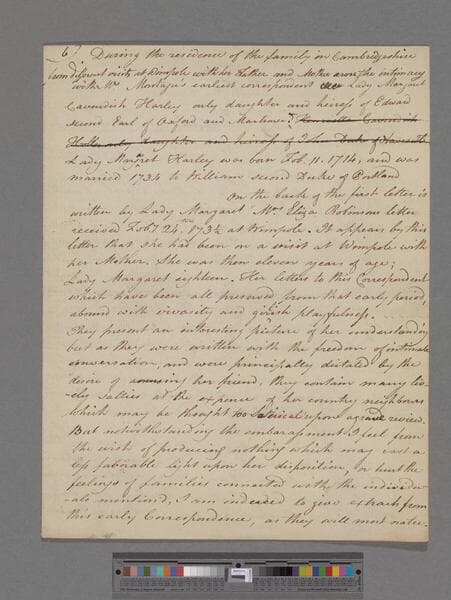 6. During the residence of the family in Cambridgeshire
from different visits at Wimpole with her Father and Mother arose the intimacy
with Mrs Montagu's earliest correspondent Lady Margaret
Cavendish Harley only daughter and heiress of Edward
second Earl of Oxford and Mortimer. Henrietta Cavendish
Holles only daughter and heiress of John Duke of Newcastle
Lady Margaret Harley was born Feb. 11. 1714, and was
married 1734 to William second Duke of Portland
On the back of the first letter is
written by Lady Margaret Mrs Eliza Robinson letter
received Febry 24th 173½ at Wimpole. It appears by this
letter that she had been on a visit at Wimpole with
her Mother. She was then eleven years of age;
Lady Margaret eighteen. Her letters to this Correspondent
which have been all preserved from that early period,
abound with vivacity and girlish playfulness.
They present an interesting picture of her understanding
but as they were written with the freedom of intimate
conversation, and were principally dictated by the
desire of amusing her friend, they contain many live-
-ly sallies at the expence of her country neighbours
which may be thought too satirical upon a review.
But notwithstanding the embarrassment I feel from
the wish of producing nothing which may cast a
less favorable light upon her disposition, or hurt the
feelings of families connected with the individu-
-als mention'd, I am induced to give extracts from
this early Correspondence, as they will most natu-